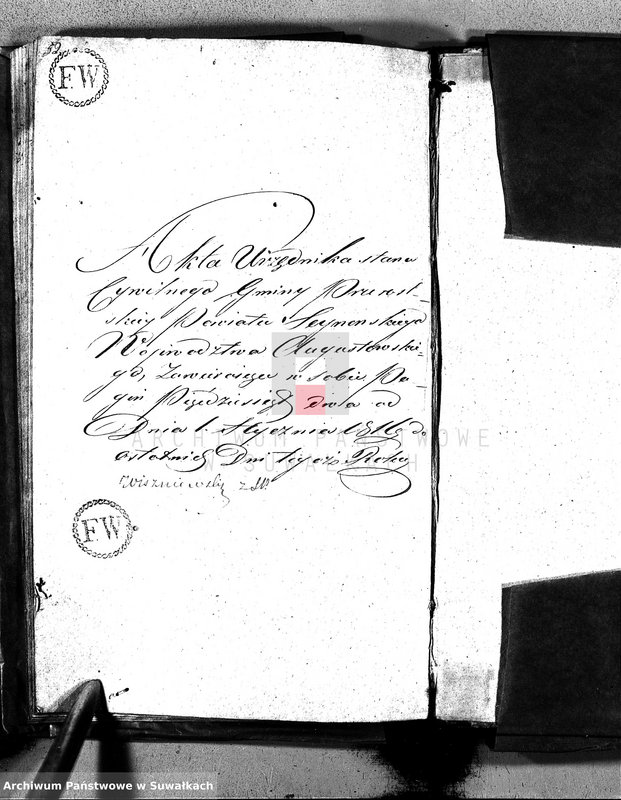 52
FW
Akta Urzędnika stanu
Cywilnego Gminy
skiey Powiatu Seynenskiego
Wojewodztwa Augustowskie-
go, Zawieraiące w sobie Pa-
gin Pięcdziesiąt dwa od
Dnia 1. Stycznia 1816 do
ostatniego Dni tegoż Roku
ARCHIWUM PAŃSTWOWE
W SUWAŁKACH
FW
Archiwum Państwowe w Suwałkach